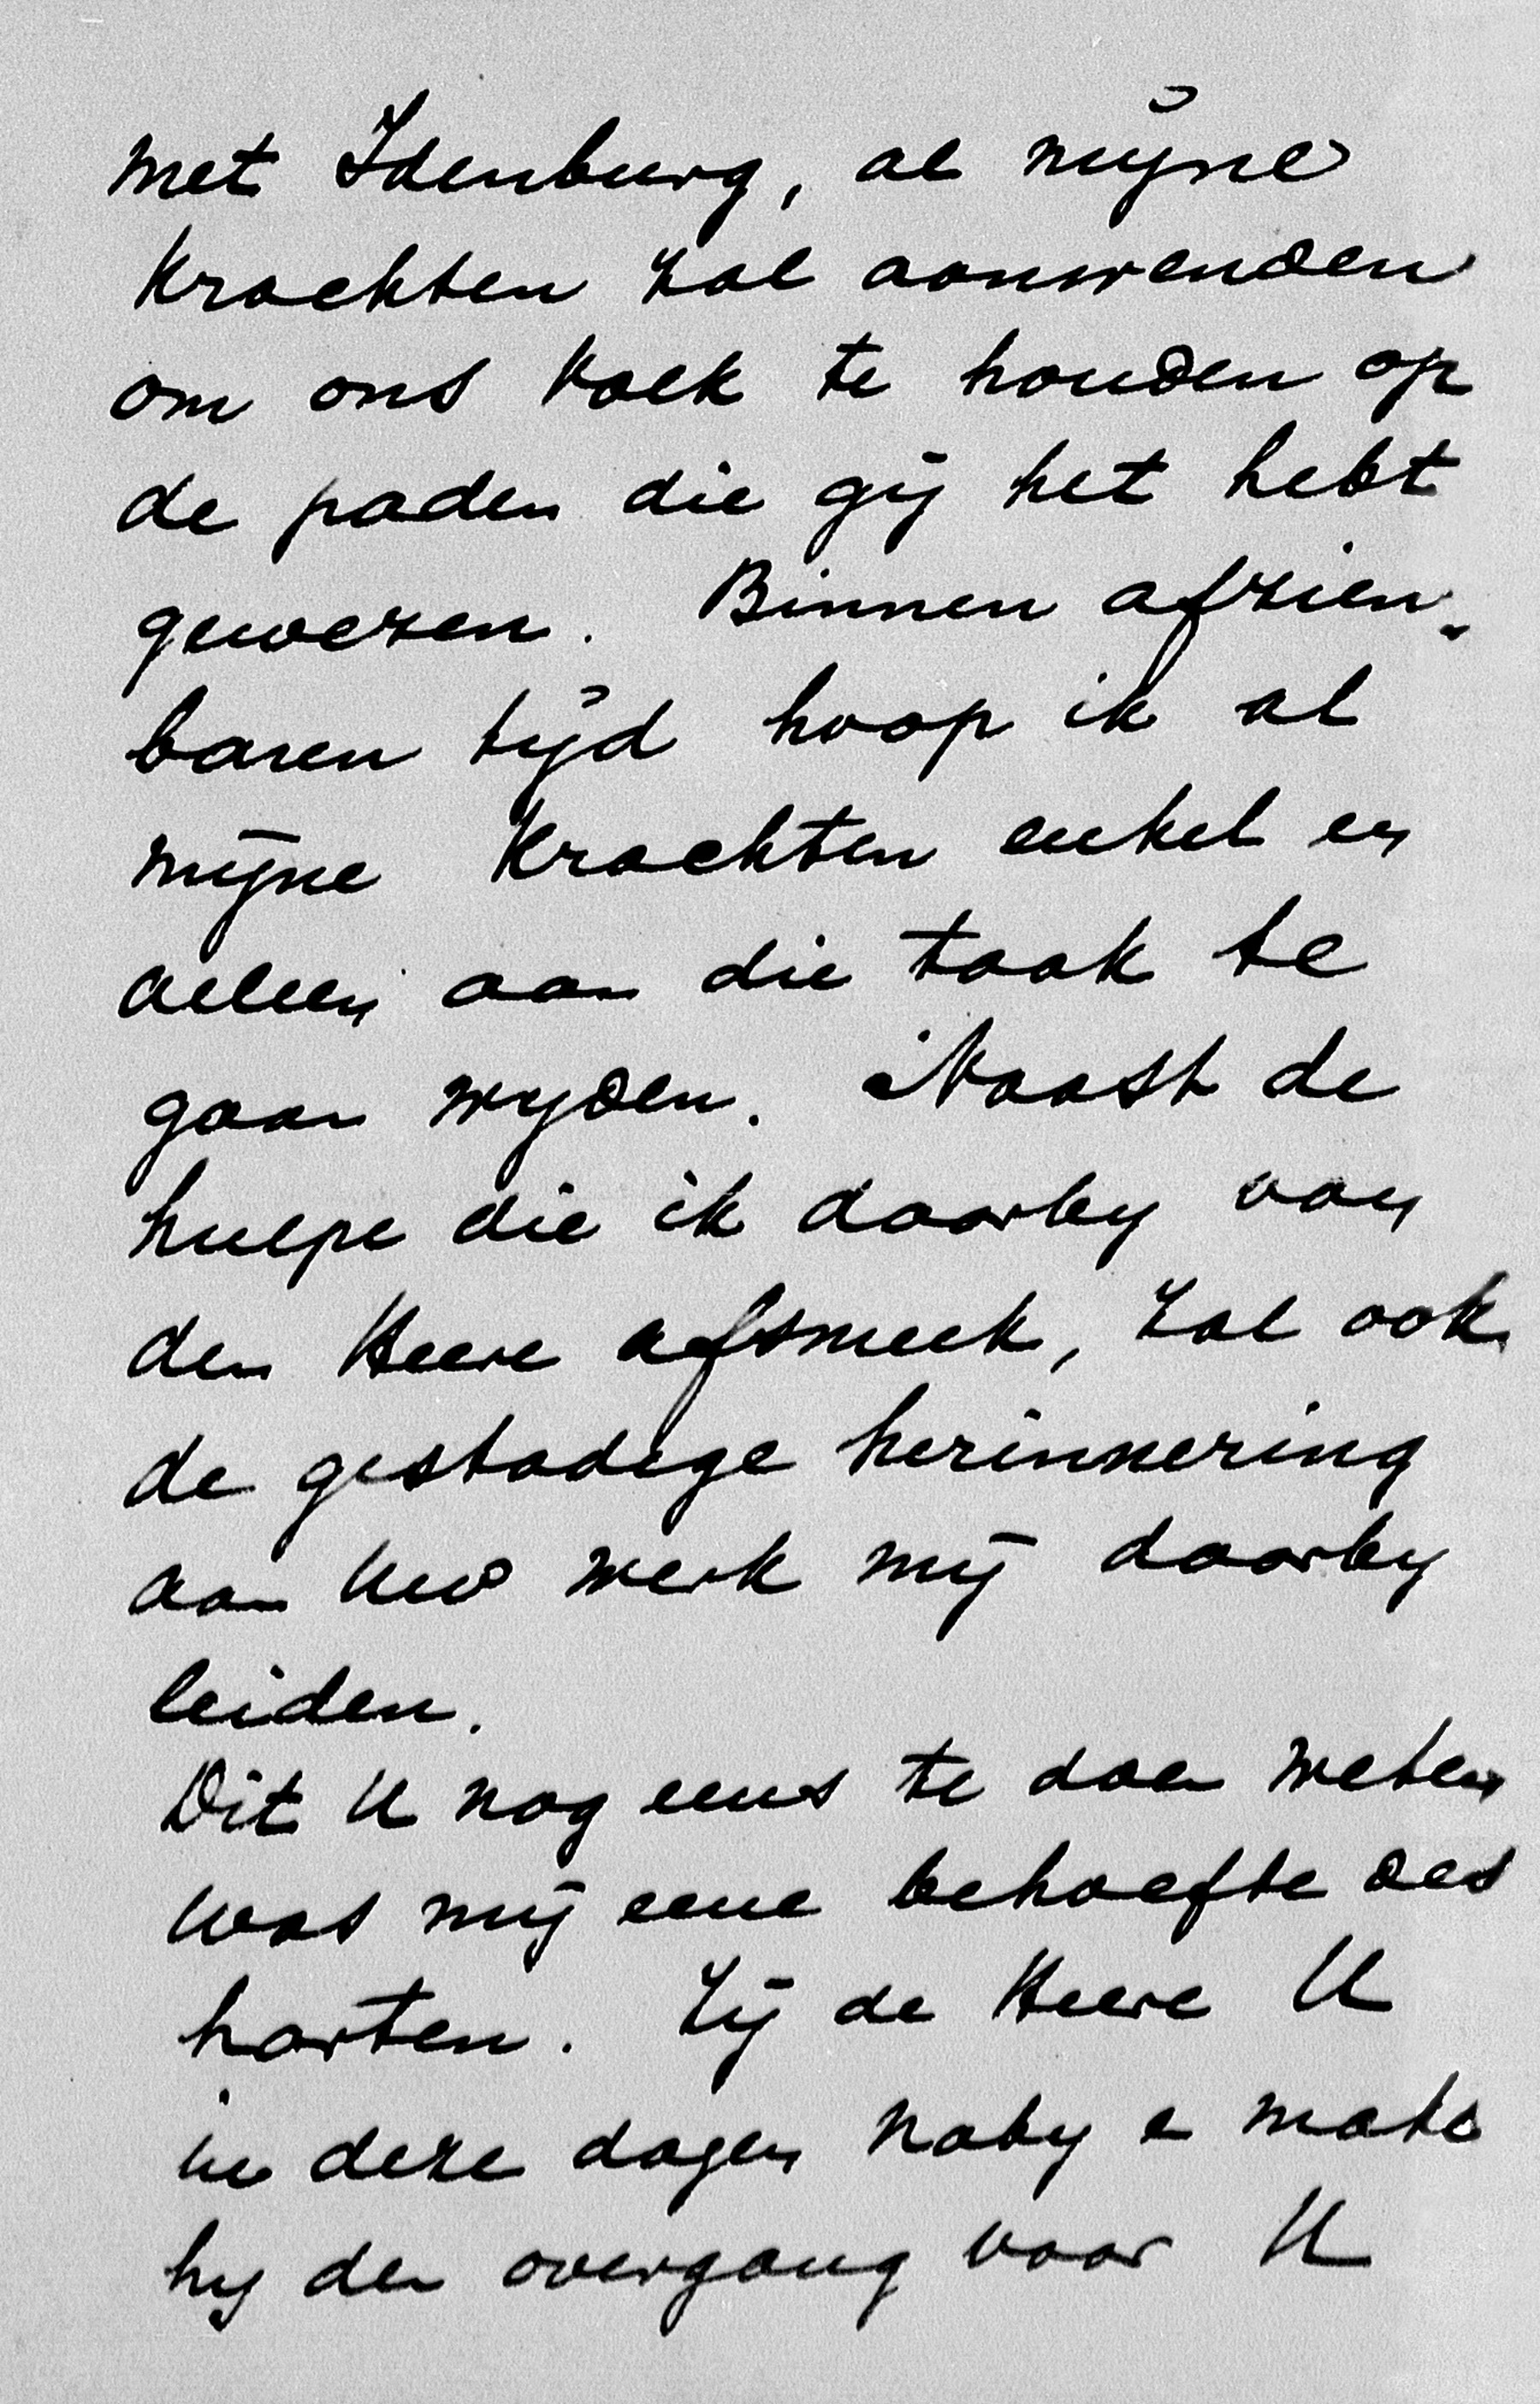 met Idenburg, al mijne
krachten zal aanwenden
om ons volk te houden op
de paden die gij het hebt
gewezen. Binnen afzien-
baren tijd hoop ik al
mijne krachten enkel en
alleen aan die taak te
gaan wyden. Naast de
hulpe die ik daarby van
den Heere afsmeek, zal ook
de gestadige herinnering
aan Uw werk mij daarby
leiden.
Dit U nog eens te doen weten
was mij eene behoefte des
harten. Zij de Heere U
in deze dagen naby en make
hy den overgang voor U